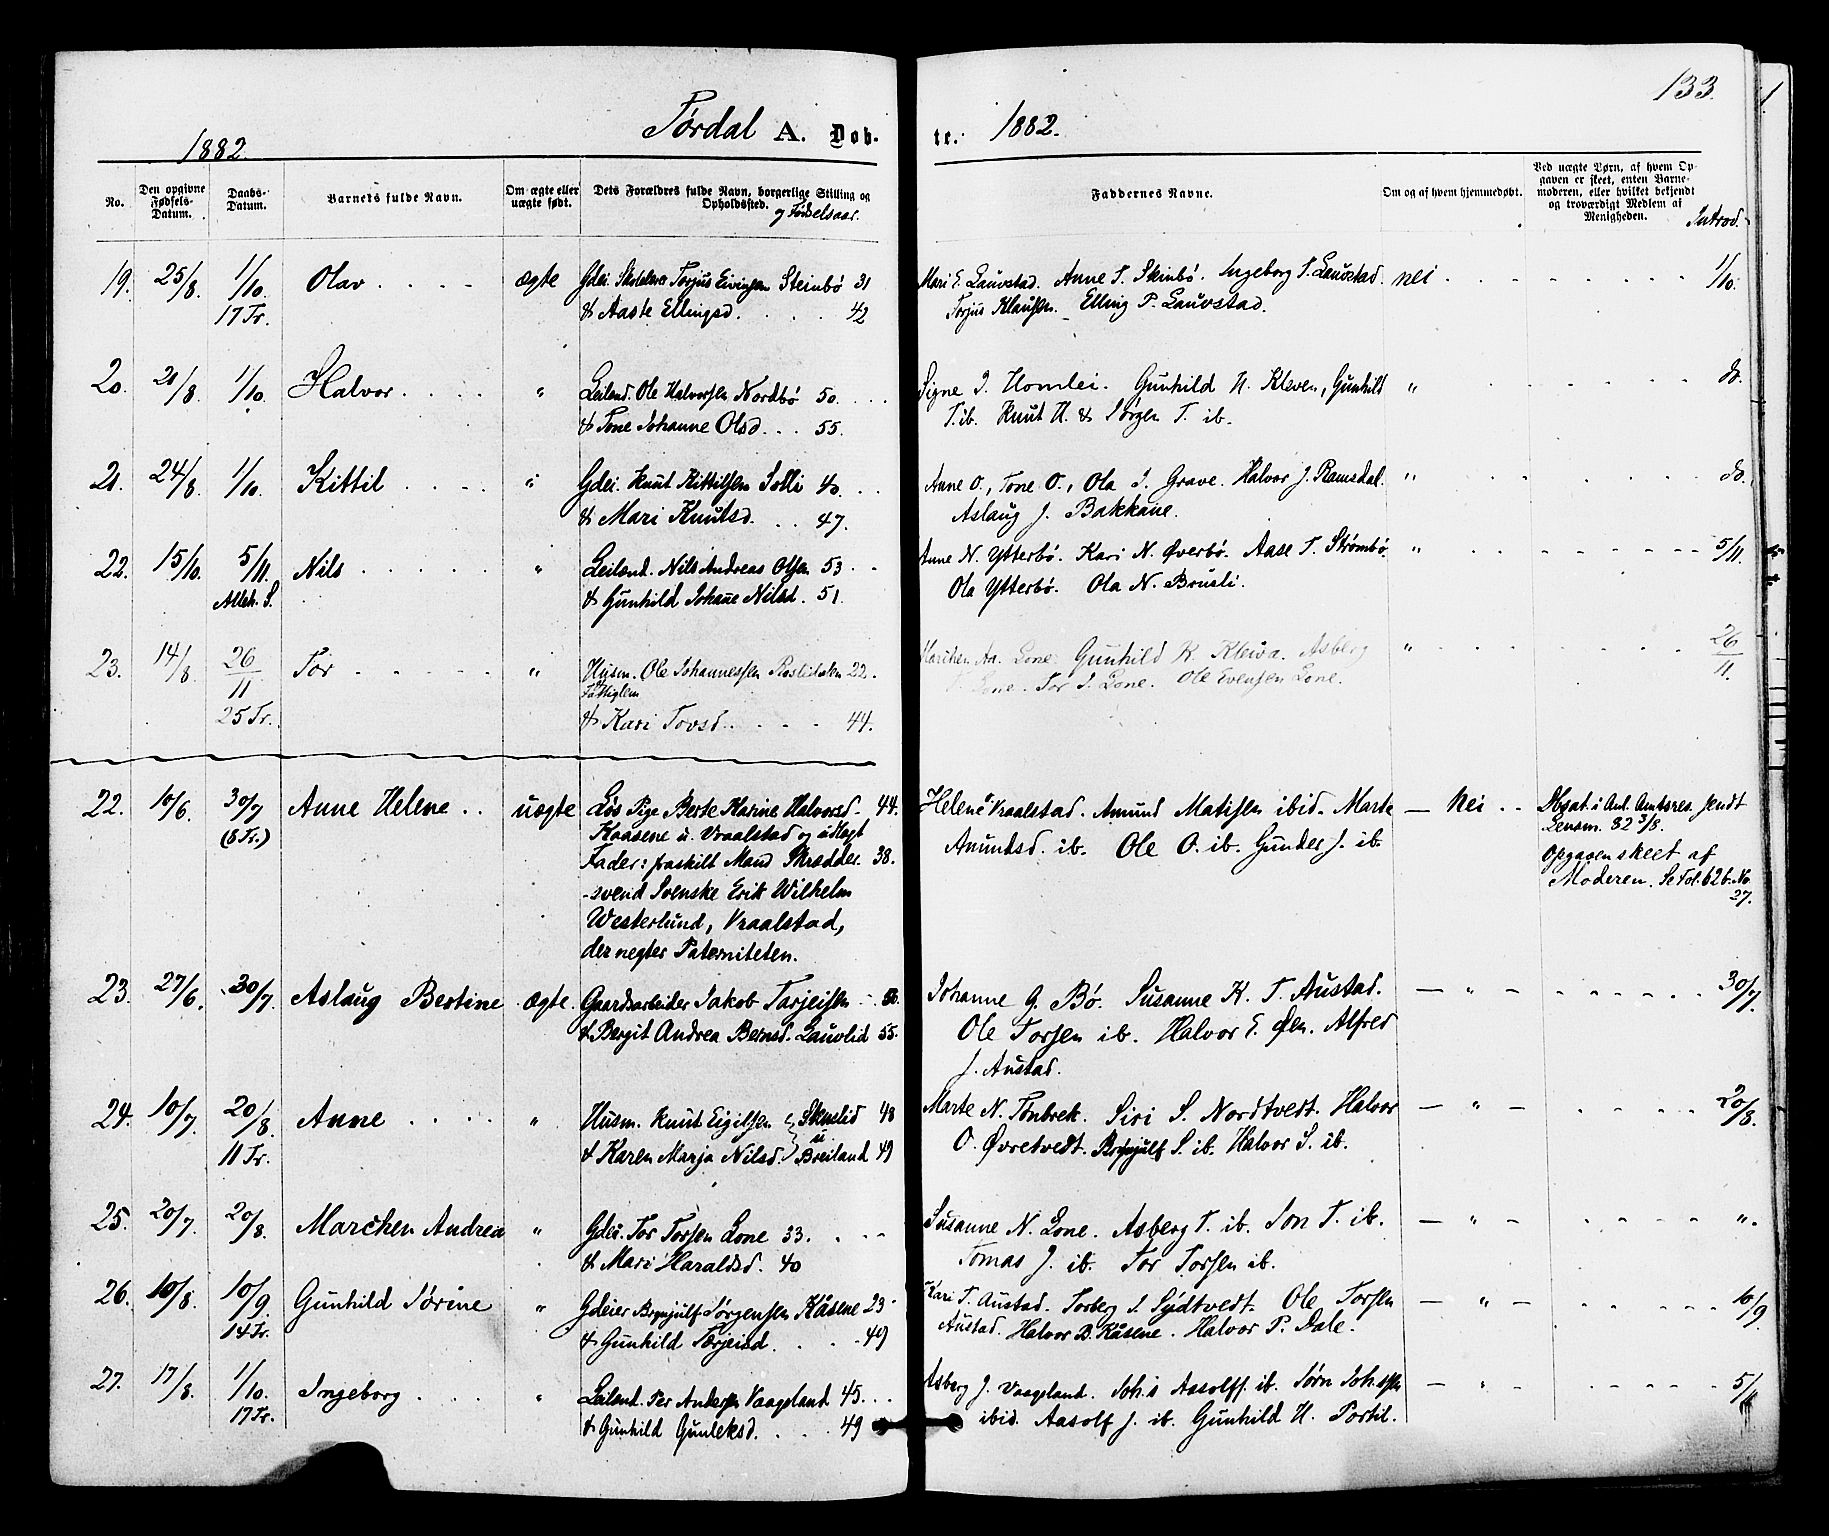 133.
Tørdal A. Døb- te: 1882.
1882.
No. | Den opgivne Fødsels-Datum. | Daabs-Datum. | Barnets fulde Navn. | Om ægte eller uægte født. | Dets Forældres fulde Navn, borgerlige Stilling og Opholdssted. og Fødselsaar. | Faddernes Navne. | Om og af hvem hjemmedøbt. | Ved uægte Børn, af hvem Opgaven er skeet, enten Barnemoderen, eller hvilket bekjendt og troværdigt Medlem af Menigheden. | Introd.
19. 25/8. 1/10. Olav . . . . ægte Gdei. Torjus Eivindsen Steinbø 31 Mari E. Lauvstad. Anne T. Skinbø. Ingeborg T. Lauvstad. nei . . . 1/10.
17 Tr. & Aaste Ellingsd. . . . . 42 Torjus Klaussen. Elling P. Lauvstad.
20. 21/8. 1/10. Halvor . . . . " Leilend. Ole Halvorsen Nordbø 50. . . . Signe J. Homlei. Gunhild H. Kleven, Gunhild " . . . do.
& Tone Johanne Olsd. . . 55. T. ib. Knut H. & Jørgen T. ib.
21. 24/8. 1/10. Kittil . . . . " Gdei. Knut Kittilsen Solli 40. . . Anne O., Tone O., Ola J. Grave. Halvor J. Ramsdal. " . . . do.
& Mari Knutsd. . . 47. Aslaug J. Bakkane.
22. 15/10. 5/11. Nils . . . . . " Leilend. Nils Andreas Olsen 53 . . Anne N. Ytterbø. Kari N. Øverbø. Aase T. Strømbø " . . . 5/11.
Alleh. S. & Gunhild Johane Nilsd. 51. Ola Ytterbø. Ola N. Brusli.
23. 14/8. 26/11 Tor . . . . . " Husm. Ole Johannessen 22. Aa. Lone. Gunhild K. Kleiva. Asberg " . . . 26/11.
Fattiglem Lone. Tor J. Lone. Ole Evensen Lone.
25 Tr. & Kari Tovsd. . . . . 44.
22. 10/6. 30/7 Anne Helene . . uægte Løs Pige Berte Karine Halvorsd. 44. Helene Vraalstad. Amund Matissen ibid. Marte — Nei . . Obsat. i Ant. Amtsres. sendt
(8 Tr.) Kaasene u. Vraalstad og udlagt Amundsd. ib. Ole O. ib. Gunder J. ib. Lensm. 82 3/8.
Fader: fraskilt Mand Skrædder- 38. Opgaven skeet af
-svend Svenske Erik Wilhelm Moderen. Se Fol. 626. No
Westerlund, Vraalstad, 27.
der negter Paterniteten.
23. 27/6. 30/7. Aslaug Bertine ægte. Gaardsarbeider Jakob Tarjeisen Johanne G. Bø. Susanne K. T. Austad. — " - . . . 30/7
& Bergit Andrea Berntsd. Lauvlid 55. Ole Torsen ib. Halvor E. Øen. Alfred
J. Austad.
24. 10/7. 20/8. Anne . . . . " Husm. Knut Eigilsen 48 Marte N. Tonbrek. Siri S. Nordtvedt. Halvor — " - . . . 20/8.
11 Tr. & Karen Marja Nilsd. u Breiland 49 O. Øvretvedt. Brynjulf S. ib. Halvor S. ib.
25. 20/7. 20/8. Marchen Andrea " Gdei. Tor Torsen Lone 33. . . . Susanne N. Lone. Asberg T. ib. Jon T. ib. — " - . . . ".
& Mari Haraldsd. 40 Tomas J. ib. Tor Torsen ib.
26. 10/8. 10/9. Gunhild Jørine " Gdeier Brynjulf Jørgensen Kåsene 23 Kari T. Austad. Torberg J. Sydtvedt. Ole Torsen — " - . . . 10/9
14 Tr. & Gunhild Tarjeisd. . . . 49 Austad. Halvor B. Kåsene. Halvor P. Dale.
27. 17/8. 1/10. Ingeborg . . . " Leilend. Per Andersen Vaagsland 45. . . Asberg J. Vaagsland. Joh.s Aasolfs. ib. Jørn Joh.ssen — " - . . . 5/11
17 Tr. & Gunhild Gunleksd. . . . 49 ibid. Aasolf J. ib. Gunhild H. Portil.